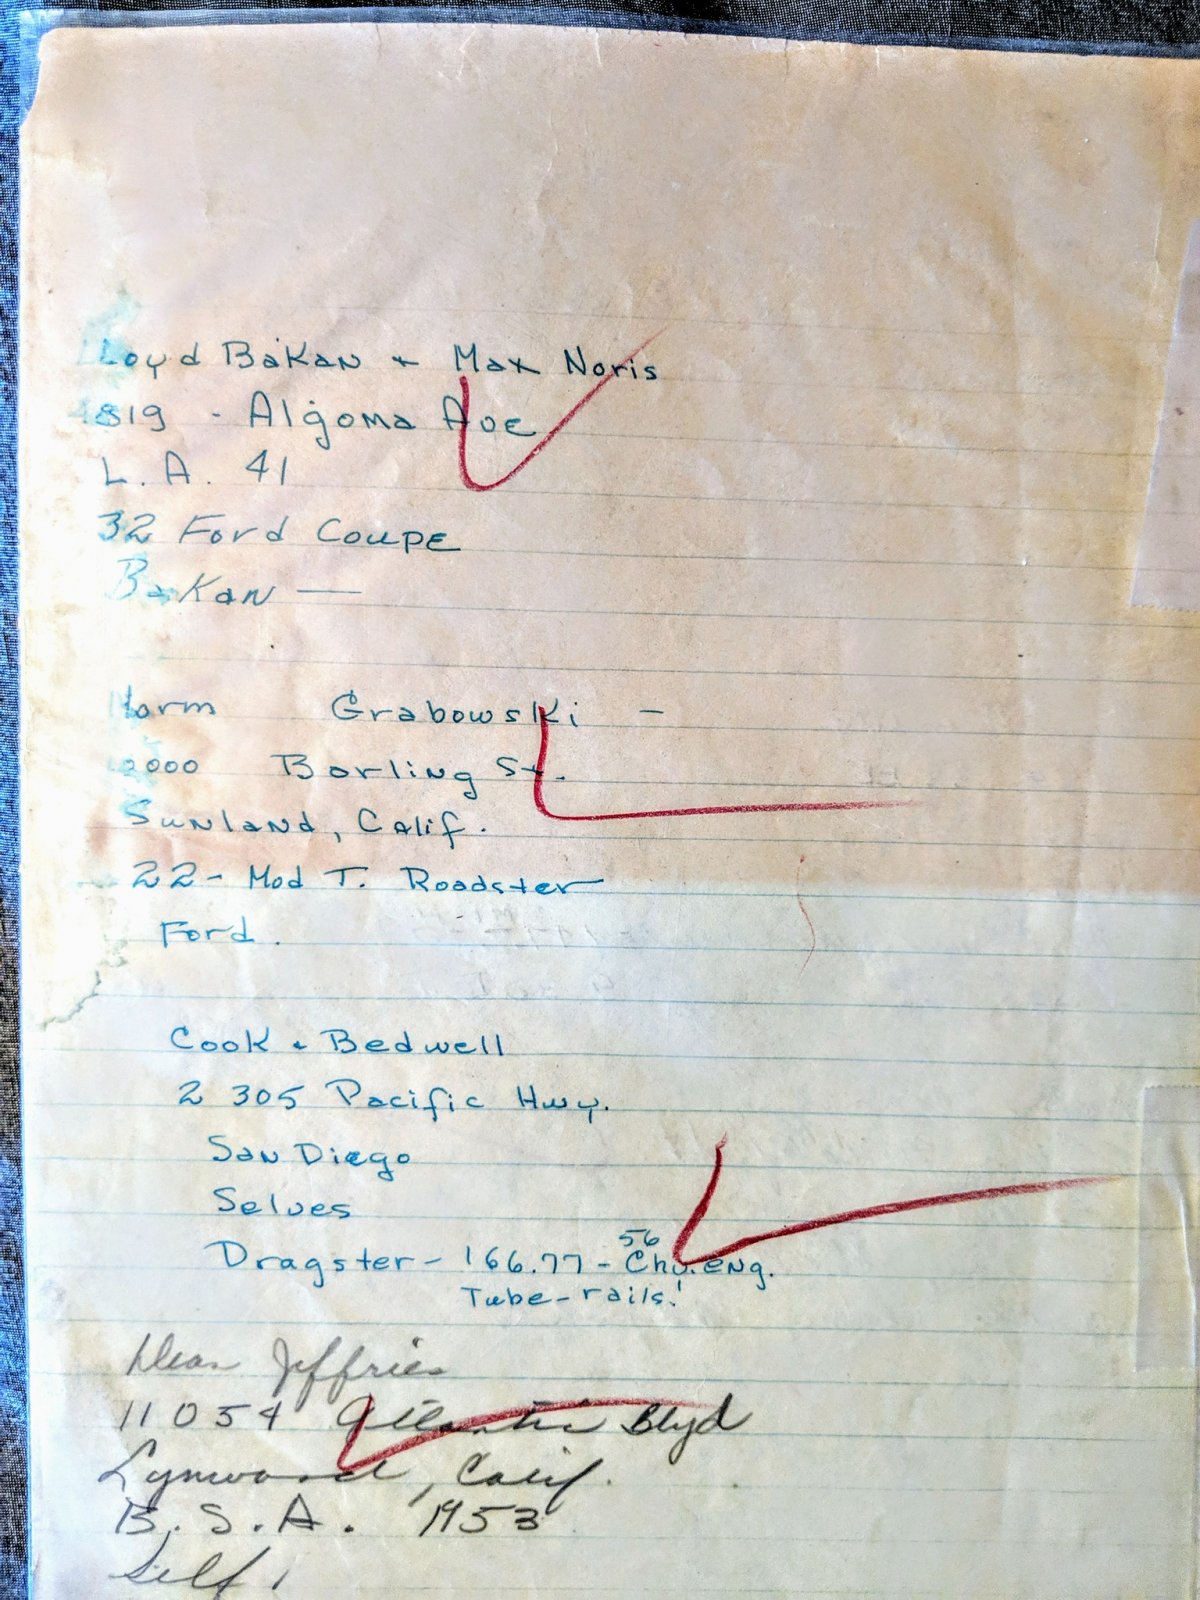 Loyd Bakan + Max Noris
4819 - Algoma Ave
L. A. 41
32 Ford Coupe
Bakan —
Norm Grabowski —
Borling St.
Sunland, Calif.
22- Mod T. Roadster
Ford.
Cook & Bedwell
2305 Pacific Hwy.
San Diego
Selves
56
Dragster - 166.77 - Chv. eng.
Tube-rails!
Dean Jeffries
11054 Atlantic Blvd
Lynwood, Calif.
B. S. A. 1953
Self